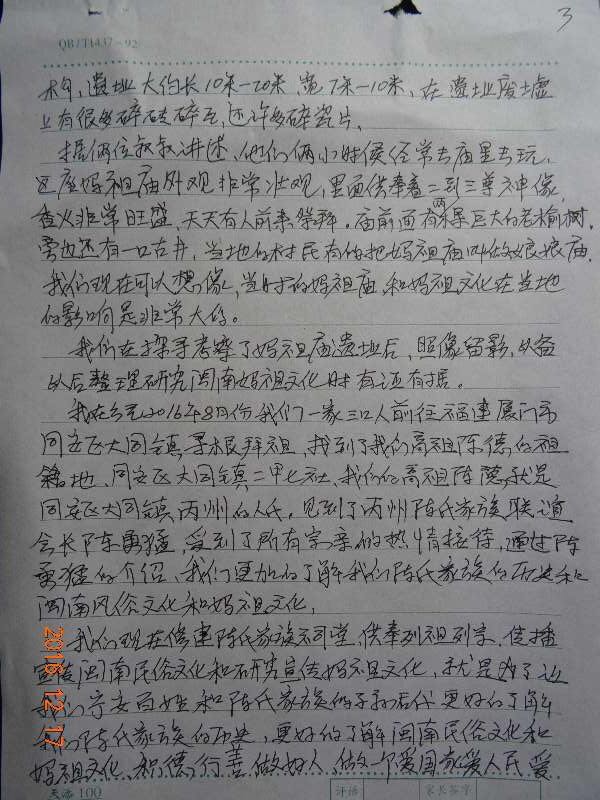 3
QB/T1437-92
构，遗址大约长10米-20米，宽7米-10米，在遗址废墟
上有很多碎砖碎瓦，还许多碎瓷片。
据俩位叔叔讲述，他们俩小时侯经常去庙里去玩，
这座妈祖庙外观非常壮观，里面供奉着二到三尊神像，
香火非常旺盛，天天有人前来祭拜。庙前面有两棵巨大的老榆树，
旁边还有一口古井，当地的村民有的把妈祖庙叫做娘娘庙。
我们现在可以想像，当时的妈祖庙和妈祖文化在当地
的影响是非常大的。
我们在探寻考察了妈祖庙遗址后，照像留影，以备
以后整理研究闽南妈祖文化时有证有据。
我在公元2016年8月份我们一家三口人前往福建厦门市
同安区大同镇寻根拜祖，找到了我们高祖陈德的祖
籍地，同安区大同镇二甲七社，我们的高祖陈德就是
同安区大同镇丙州的人氏，见到了丙州陈氏家族联谊
会长陈勇猛，受到了所有宗亲的热情接待，通过陈
勇猛的介绍，我们更加的了解我们陈氏家族的历史和
闽南风俗文化和妈祖文化，
我们现在修建陈氏家族祠堂，供奉列祖列宗，传播
宣传闽南民俗文化和研究宣传妈祖文化，就是为了让
我们宁安百姓和陈氏家族的子孙后代更好的了解
我们陈氏家族的历史，更好的了解闽南民俗文化和
妈祖文化，积德行善，做好人，做一个爱国家爱人民，爱
2016 12 17
天添 100
评语
家长签字